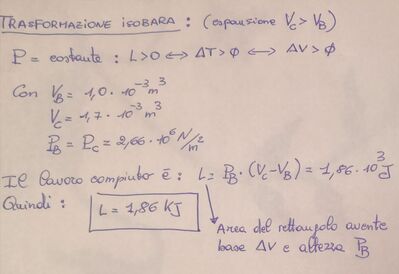 TRASFORMAZIONE ISOBARA : (espansione V_C > V_B)
P = costante : L>0 ⟺ ΔT>0 ⟺ ΔV>0
Con V_B = 1,0 · 10^-3 m^3
V_C = 1,7 · 10^-3 m^3
P_B = P_C = 2,66 · 10^6 N/m^2
Il lavoro compiuto è : L = P_B · (V_C - V_B) = 1,86 · 10^3 J
Quindi : L = 1,86 KJ
Area del rettangolo avente
base ΔV e altezza P_B